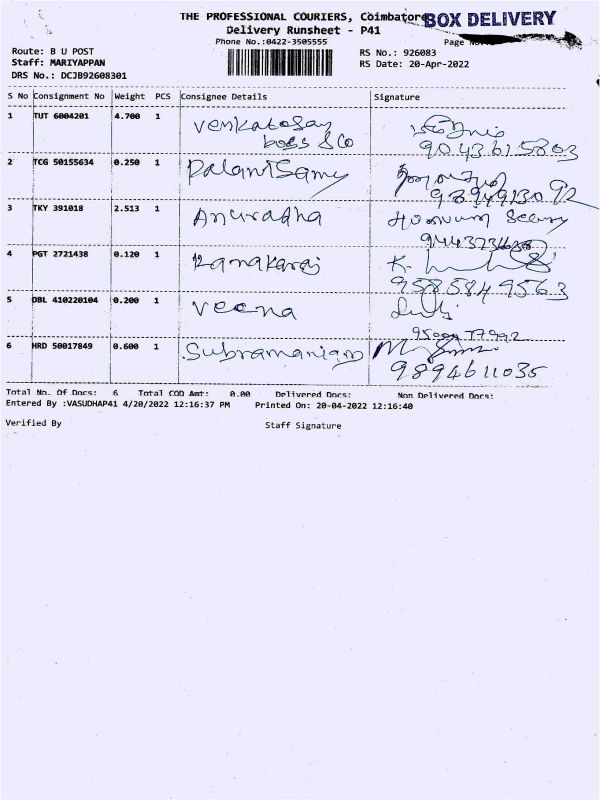 THE PROFESSIONAL COURIERS, Coimbatore
BOX DELIVERY
Delivery Runsheet - P41
Phone No.:0422-3505555
Page No.
Route: B U POST
RS No.: 926083
Staff: MARIYAPPAN
RS Date: 20-Apr-2022
DRS No.: DCJB92608301
S No Consignment No Weight PCS Consignee Details Signature
1 TUT 6004201 4.700 1 Venkatosay
boss & Co
9043615803
2 TCG 50155634 0.250 1 PalaniSamy
3 TKY 391018 2.513 1 Anuradha
4 PGT 2721438 0.120 1 Kanakaraj
9585849563
5 DBL 410220104 0.200 1 Veena
6 HRD 50017849 0.600 1 Subramaniam
9894611035
Total No. Of Docs: 6 Total COD Amt: 0.00 Delivered Docs: Non Delivered Docs:
Entered By :VASUDHAP41 4/20/2022 12:16:37 PM Printed On: 20-04-2022 12:16:40
Verified By
Staff Signature